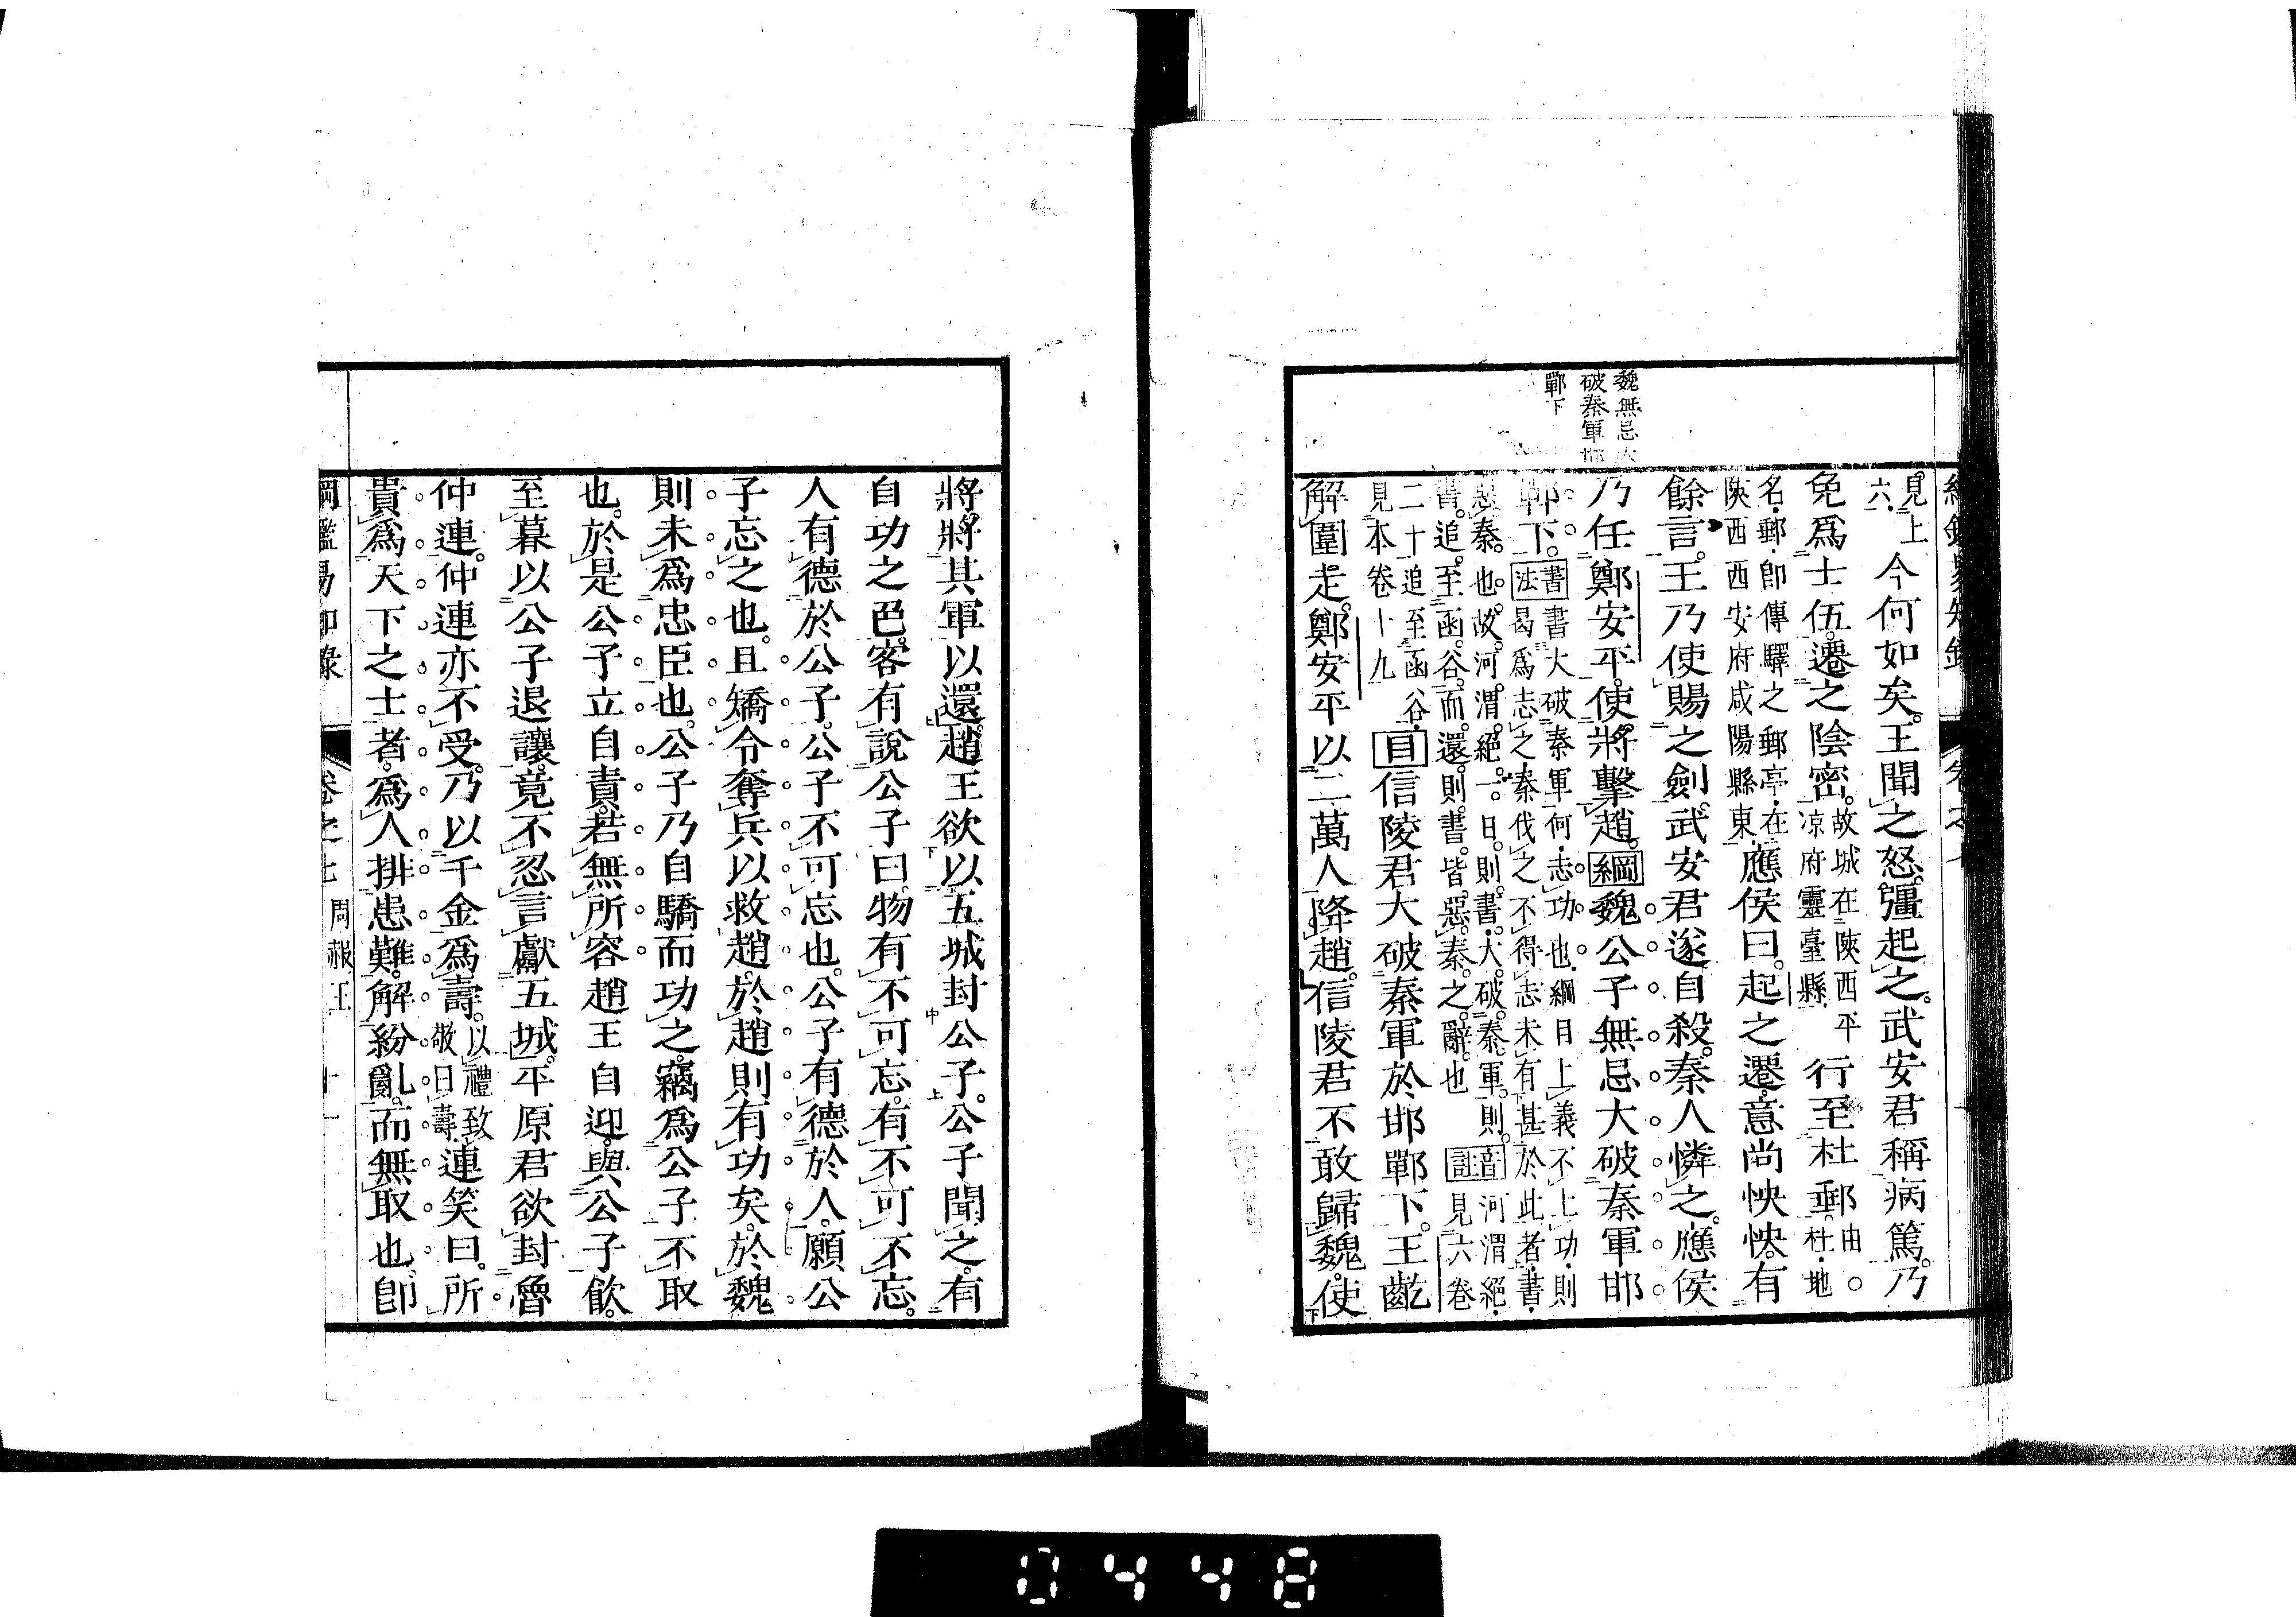 魏無忌大
破秦軍邯
鄲下
見上
六
今何如矣王聞之怒彊起之武安君稱病篤乃
免爲士伍遷之陰密故城在陝西平
凉府靈臺縣
行至杜郵由
杜地
名郵卽傳驛之郵亭在
陝西西安府咸陽縣東
應侯曰起之遷意尚怏怏有
餘言王乃使賜之劍武安君遂自殺秦人憐之應侯
乃任鄭安平使將擊趙綱魏公子無忌大破秦軍邯
鄲下書法
書大破秦軍何志功也綱目上義不上功則
曷爲志之秦伐之不得志未有甚於此者書
惡秦也故河渭絕一日則書大破秦軍則
書追至函谷而還則書皆惡秦之辭也
音註
河渭絕
見六卷
二十追至函谷
見本卷十九
目信陵君大破秦軍於邯鄲下王齕
解圍走鄭安平以二萬人降趙信陵君不敢歸魏使
將將其軍以還趙王欲以五城封公子公子聞之有
自功之色客有說公子曰物有不可忘有不可不忘
人有德於公子公子不可忘也公子有德於人願公
子忘之也且矯令奪兵以救趙於趙則有功矣於魏
則未爲忠臣也公子乃自驕而功之竊爲公子不取
也於是公子立自責若無所容趙王自迎與公子飮
至暮以公子退讓竟不忍言獻五城平原君欲封魯
仲連仲連亦不受乃以千金爲壽以禮致
敬曰壽
連笑曰所
貴爲天下之士者爲人排患難解紛亂而無取也卽
綱鑑易知錄 卷之七 周赧王 十一